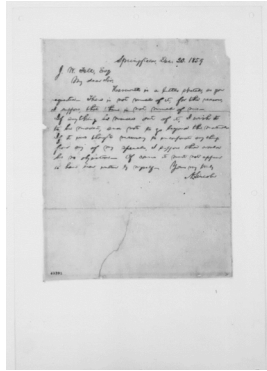 Springfield, Dec. 20. 1859
J. W. Fell, Esq
My dear Sir:
Herewith is a little sketch, as you
requested. There is not much of it, for the reason,
I suppose, that there is not much of me.
If anything be made out of it, I wish it
to be modest, and not to go beyond the material
If it were thought necessary to incorporate any thing
from any of my speeches, I suppose there would
be no objection. Of course it must not appear
to have been written by myself. Yours very truly
A. Lincoln